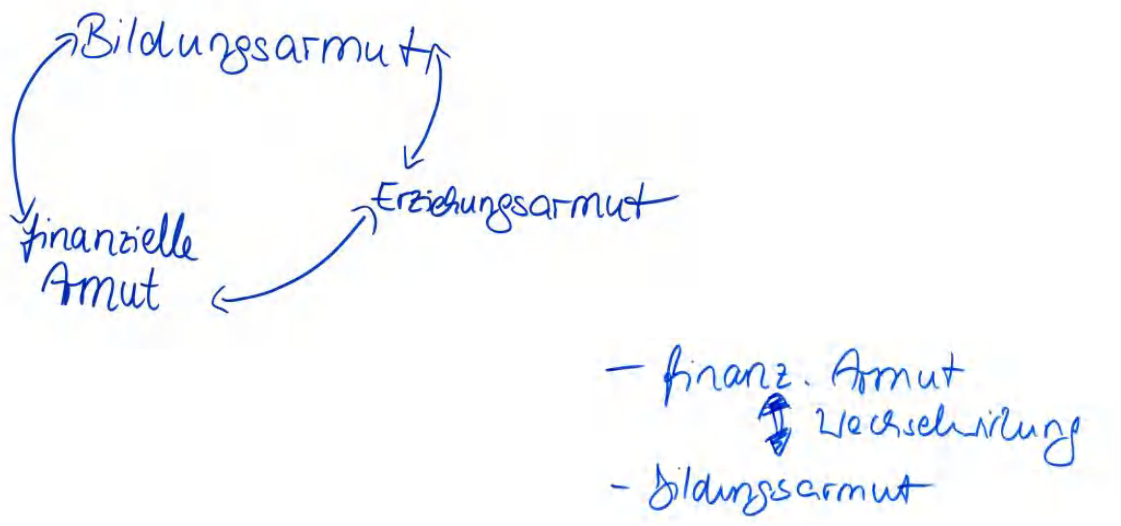 Bildungsarmut
Erziehungsarmut
finanzielle
Armut
- finanz. Armut
Wechselwirkung
- Bildungsarmut